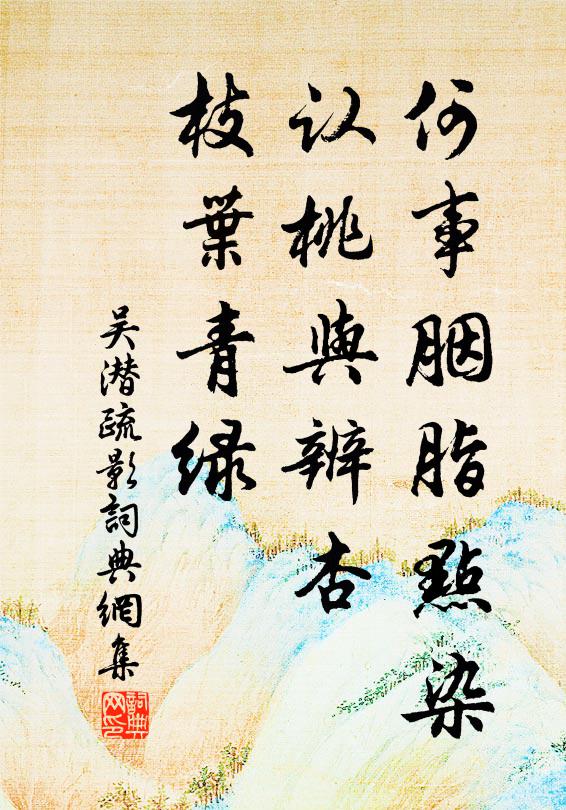 何事胭脂點染
认桃與辨杏
枝葉青绿
吴潜疏影詞典網集
詞典网印